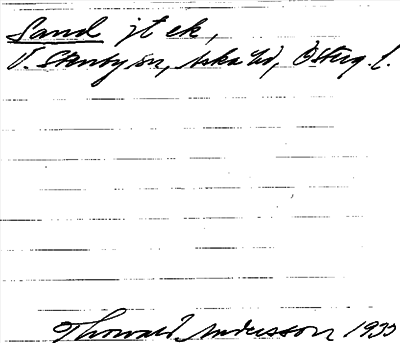 Sand jt ek,
V. Stenby sn, Aska hd, Östg. l.
Thorvald Andersson